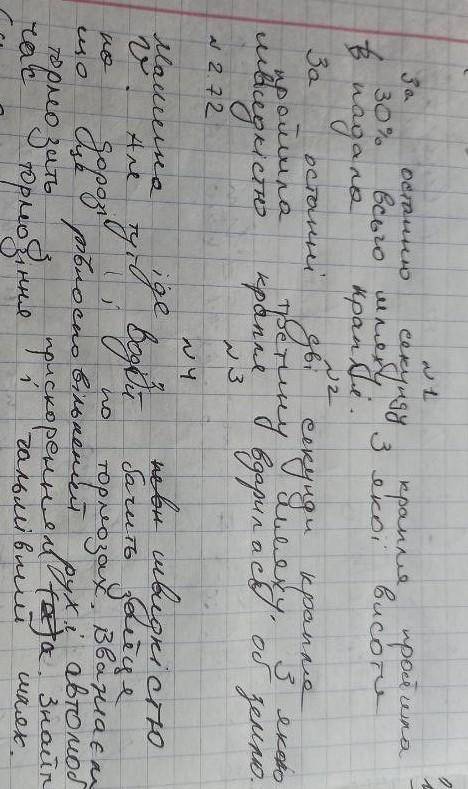 №1
За останню секунду крапля пройшла
30% всього шляху. З якої висоти
падала крапля.
№2
За останні дві секунди крапля
пройшла третину шляху. З якою
швидкістю крапля вдарилась об землю.
№3
№ 2.72
№4
Машина іде певн швидкістю
V. Але тут водій бачить зайця
на дорозі і по тормозах. Вважаєм
що це рівносповільнений рух і автомоб
тормозить з прискоренням а. Знайти
час тормозіння і гальмівний шлях.